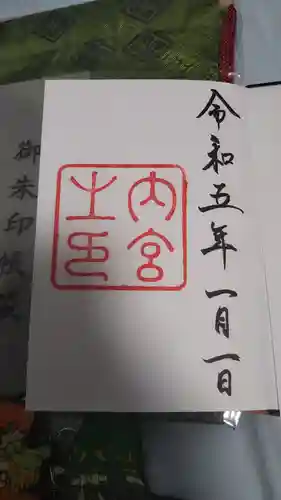 令和五年一月一日
内宮
之印
御朱印帳